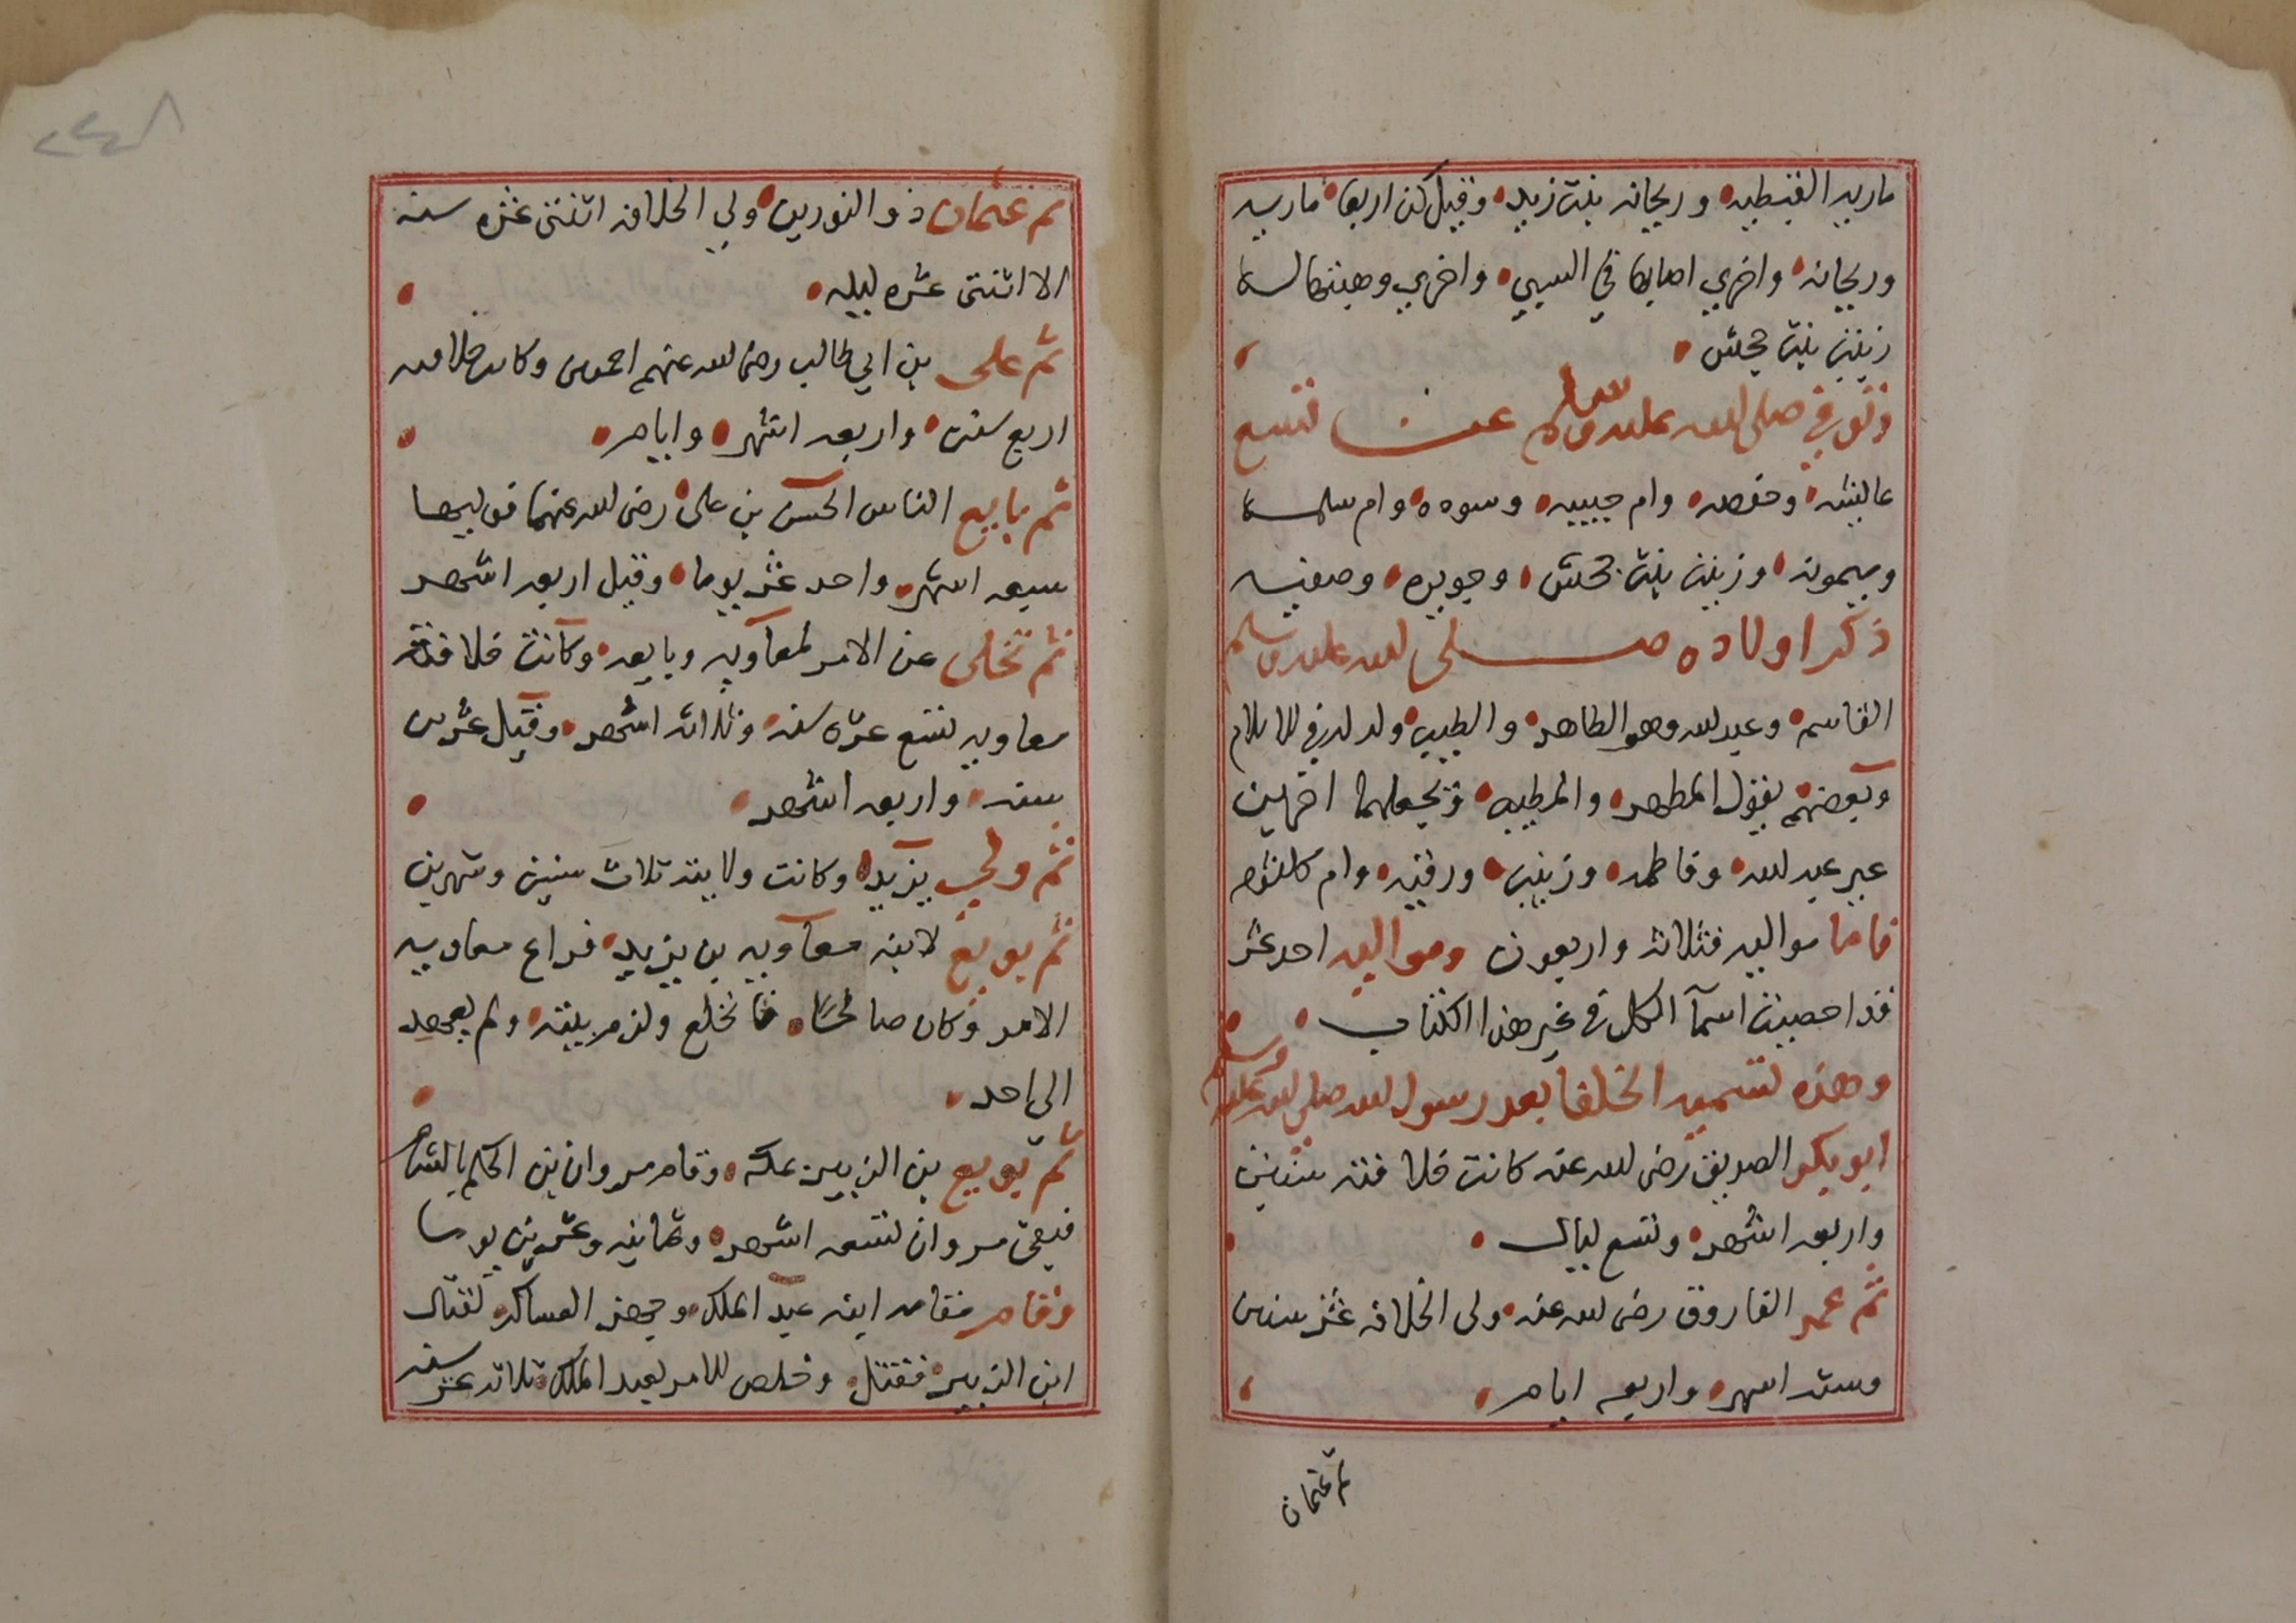 ماريه القبطيه وريحانه بنت زيد وقيل كن اربعا ماريه
وريحانه واخري اصابها في السبي واخري وهبتها له
زينب بنت جحش
وتوفي صلى الله عليه وسلم عن تسع
عايشه وحفصه وام حبيبه وسوده وام سلمه
وميمونه وزينب بنت جحش وجويره وصفيه
ذكر اولاده صلى الله عليه وسلم
القاسم وعبد الله وهو الطاهر والطيب ولد له في الاسلام
وبعضهم يقول المطهر والمطيب ويجعلهما اخرين
غير عبد الله وفاطمه وزينب ورقيه وام كلثوم
فاما مواليه فثلاثه واربعون ومواليه احد عشر
قد احصيت اسمآ الكل في غير هذا الكتاب
وهذه تسميه الخلفا بعد رسول الله صلى الله عليه وسلم
ابو بكر الصديق رضى الله عنه كانت خلافته سنتين
واربعه اشهر وتسع ليال
ثم عمر الفاروق رضى الله عنه ولى الخلافه عشر سنين
وسته اشهر واربعه ايام
ثم عثمان
ثم عثمان ذو النورين ولي الخلافه اثنتى عشره سنه
الا اثنتى عشره ليله
ثم على بن ابي طالب رضى الله عنهم اجمعين وكانت خلافته
اربع سنين واربعه اشهر وايام
ثم بايع الناس الحسن بن على رضى الله عنهما فوليها
سبعه اشهر واحد عشر يوما وقيل اربعه اشهر
ثم تخلى عن الامر لمعاويه وبايعه وكانت خلافة
معاويه تسع عشره سنه وثلاثه اشهر وقيل عشرين
سنه واربعه اشهر
ثم ولي يزيد وكانت ولايته ثلاث سنين وشهرين
ثم بويع لابنه معاويه بن يزيد فراع معاويه
الامر وكان صالحًا فانخلع ولزم بيته ولم يعهد
الى احد
ثم بويع بن الزبير بمكه وقام مروان بن الحكم بالشام
فبقى مروان تسعه اشهر وثمانيه وعشرين يوما
وقام مقامه ابنه عبد الملك وجهز العساكر لقتال
ابن الزبير فقتل وخلص الامر لعبد الملك ثلاثه عشر سنه